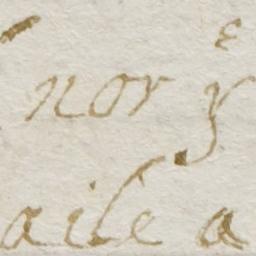 nor yͤ
aile a